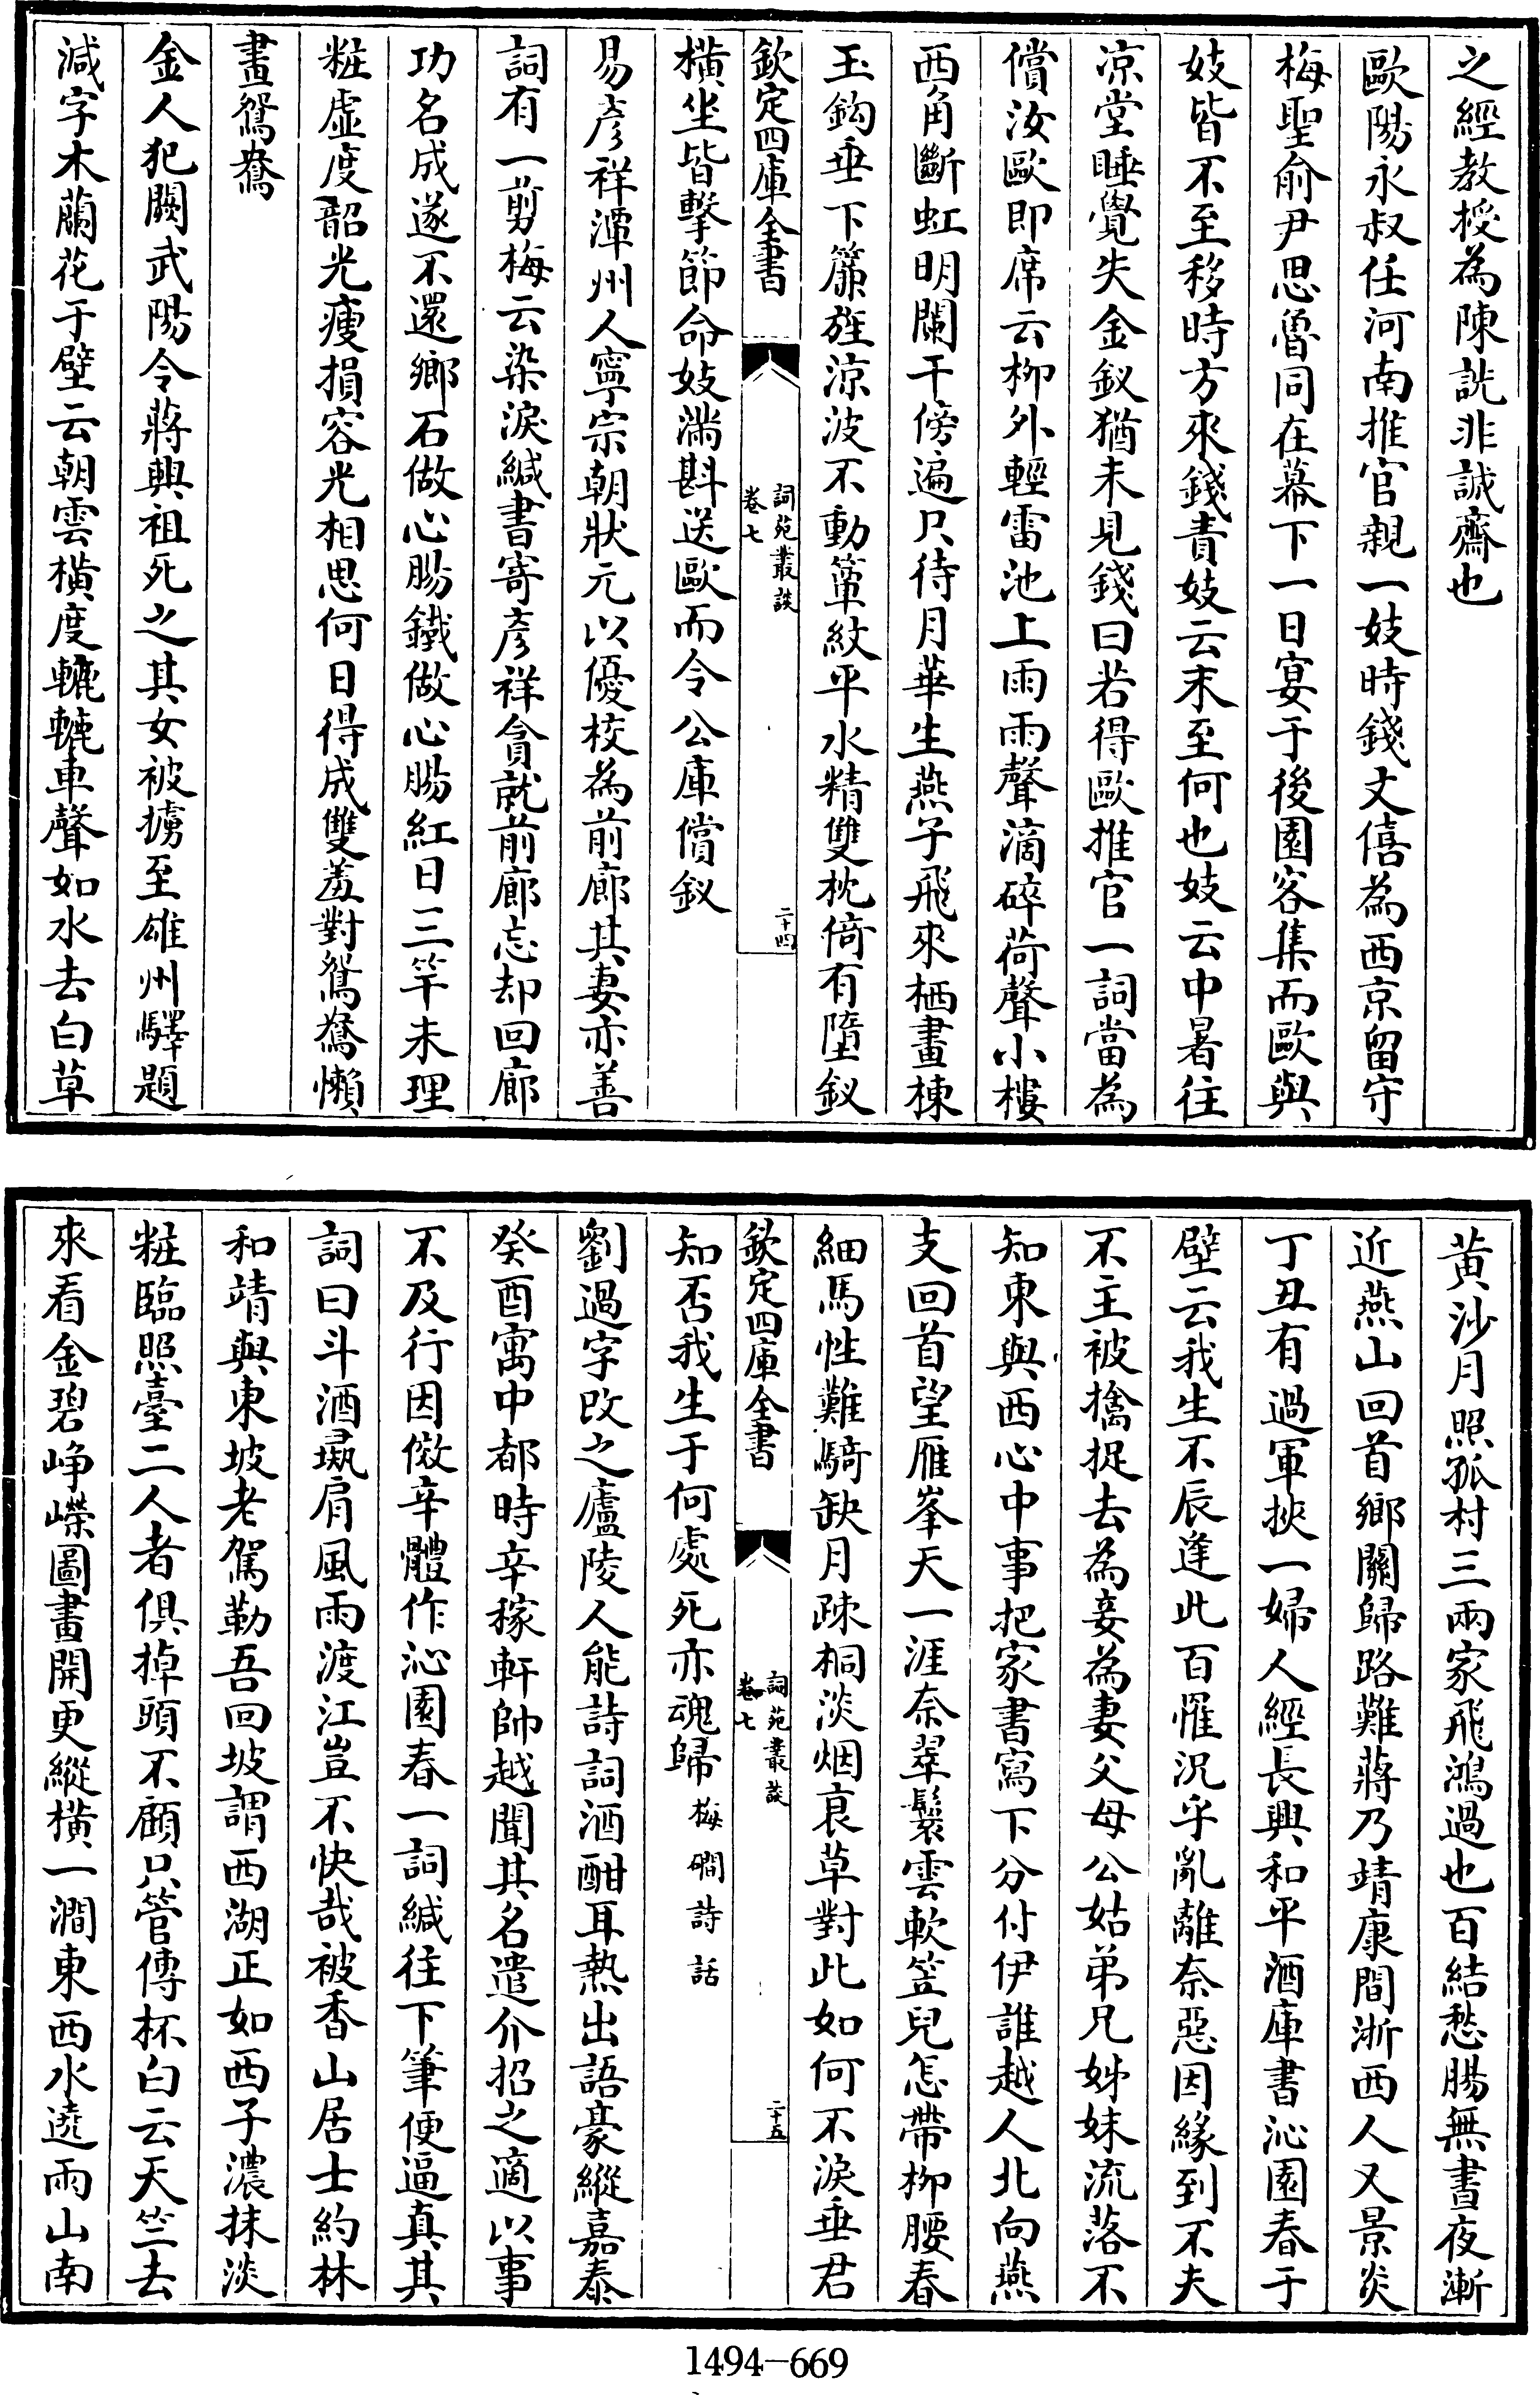 之經教授為陳詵非誠齋也
歐陽永叔任河南推官親一妓時錢文僖為西京留守
梅聖俞尹思魯同在幕下一日宴于後園客集而歐與
妓皆不至移時方來錢責妓云末至何也妓云中暑往
凉堂睡覺失金釵猶未見錢曰若得歐推官一詞當為
償汝歐即席云柳外輕雷池上雨雨聲滴碎荷聲小樓
西角斷虹明闌干傍遍只待月華生燕子飛來栖畫棟
玉鈎垂下簾旌涼波不動簟紋平水精雙枕倚有墮釵
欽定四庫全書
詞苑叢談
卷七
二十四
橫坐皆擊節命妓滿斟送歐而令公庫償釵
易彦祥潭州人寧宗朝狀元以優校為前廊其妻亦善
詞有一剪梅云染淚緘書寄彦祥貪就前廊忘却回廊
功名成遂不還鄉石做心腸鐵做心腸紅日三竿未理
粧虚度韶光瘦損容光相思何日得成雙羞對鴛鴦懶
畫鴛鴦
金人犯闕武陽令蔣興祖死之其女被擄至雄州驛題
減字木蘭花于壁云朝雲橫度轆轆車聲如水去白草
黄沙月照孤村三兩家飛鴻過也百結愁腸無晝夜漸
近燕山回首鄉關歸路難蔣乃靖康間浙西人又景炎
丁丑有過軍挾一婦人經長興和平酒庫書沁園春于
壁云我生不辰逢此百罹况乎亂離奈惡因緣到不夫
不主被擒捉去為妾為妻父母公姑弟兄姊妹流落不
知東與西心中事把家書寫下分付伊誰越人北向燕
支回首望雁峯天一涯奈翠鬟雲軟笠兒怎帶柳腰春
細馬性難騎缺月疎桐淡烟衰草對此如何不淚垂君
欽定四庫全書
詞苑叢談
卷七
二十五
知否我生于何處死亦魂歸梅磵詩話
劉過字改之廬陵人能詩詞酒酣耳熱出語豪縱嘉泰
癸酉寓中都時辛稼軒帥越聞其名遣介招之適以事
不及行因倣辛體作沁園春一詞緘往下筆便逼真其
詞曰斗酒彘肩風雨渡江豈不快哉被香山居士約林
和靖與東坡老駕勒吾回坡謂西湖正如西子濃抹淡
粧臨照臺二人者俱掉頭不顧只管傳杯白云天竺去
來看金碧崢嶸圖畫開更縱橫一澗東西水遶兩山南
1494-669